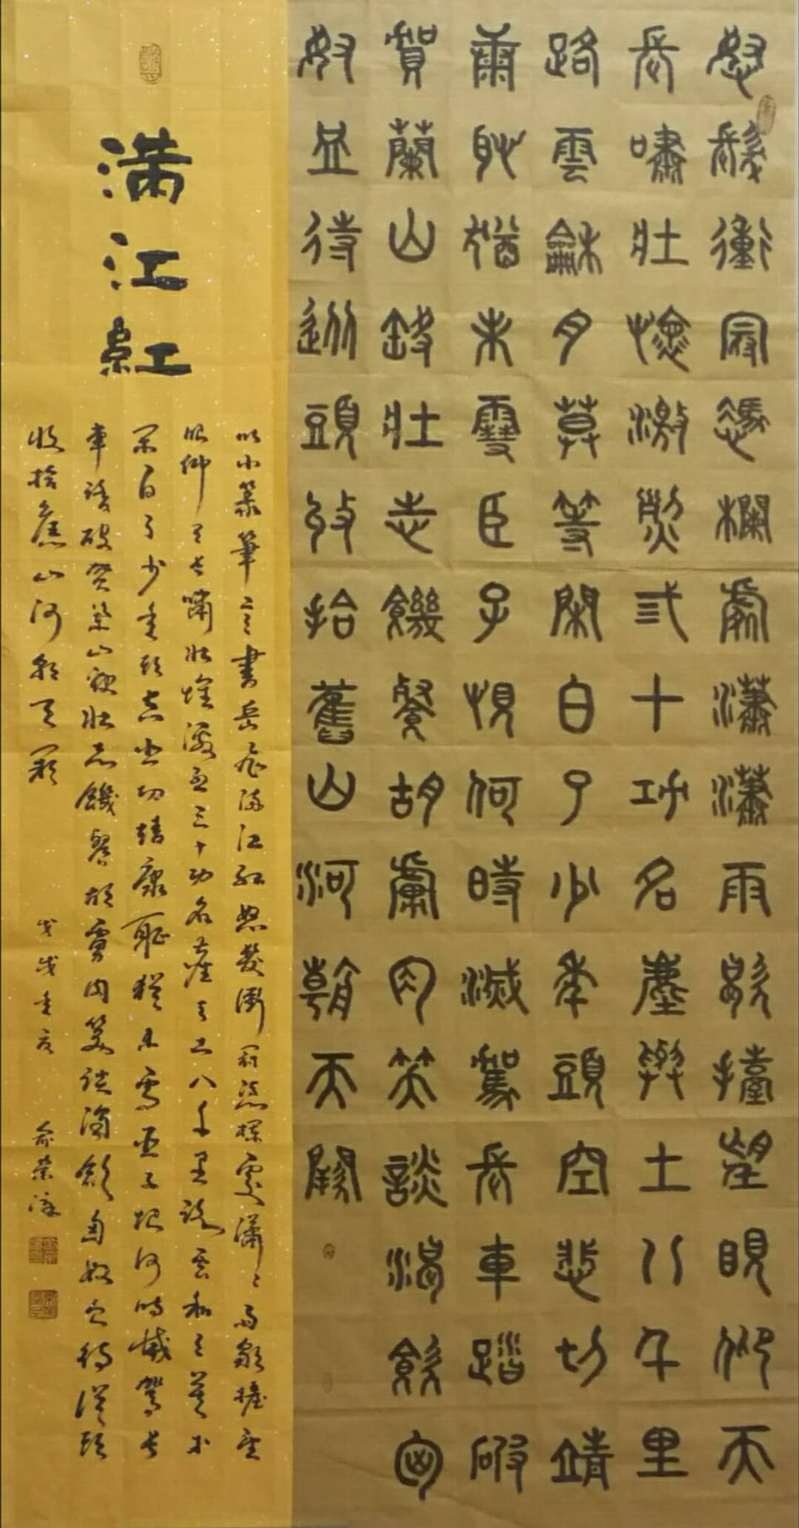 怒髮衝冠憑欄處瀟瀟雨歇擡望眼仰天
長嘯壯懷激烈弎十功名塵與土八千里
路雲龢月莫等閑白了少年頭空悲切靖
康恥猶未雪臣子恨何時滅駕長車踏破
賀蘭山缺壯志饑餐胡虜肉笑談渴飲匈
奴血待從頭收拾舊山河朝天闕
满江紅
以小篆筆意書岳飛滿江紅怒髮衝冠憑欄處瀟瀟雨歇擡望
眼仰天長嘯壯懷激烈三十功名塵與土八千里路雲和月莫等
閑白了少年頭空悲切靖康恥猶未雪臣子恨何時滅駕長
車踏破賀蘭山缺壯志饑餐胡虜肉笑談渴飲匈奴血待從頭
收拾舊山河朝天闕
戊戌年
俞榮